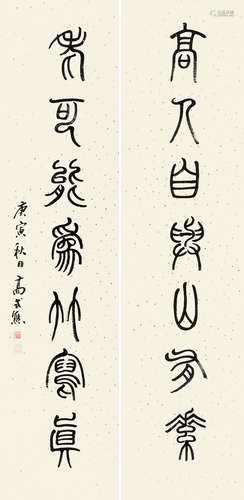 高人自與山有素
老可能為竹寫真
庚寅秋日高式熊